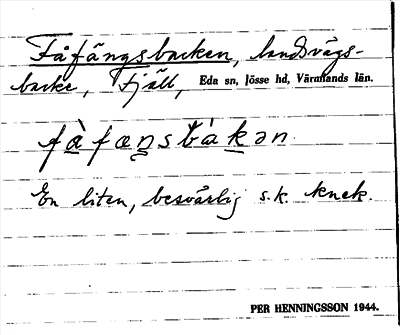 Fåfängsbacken, landsvägs-
backe, Fjäll, Eda sn, Jösse hd, Värmlands län.
fàfæŋsbàkən
En liten, besvärlig s.k. knek.
PER HENNINGSSON 1944.